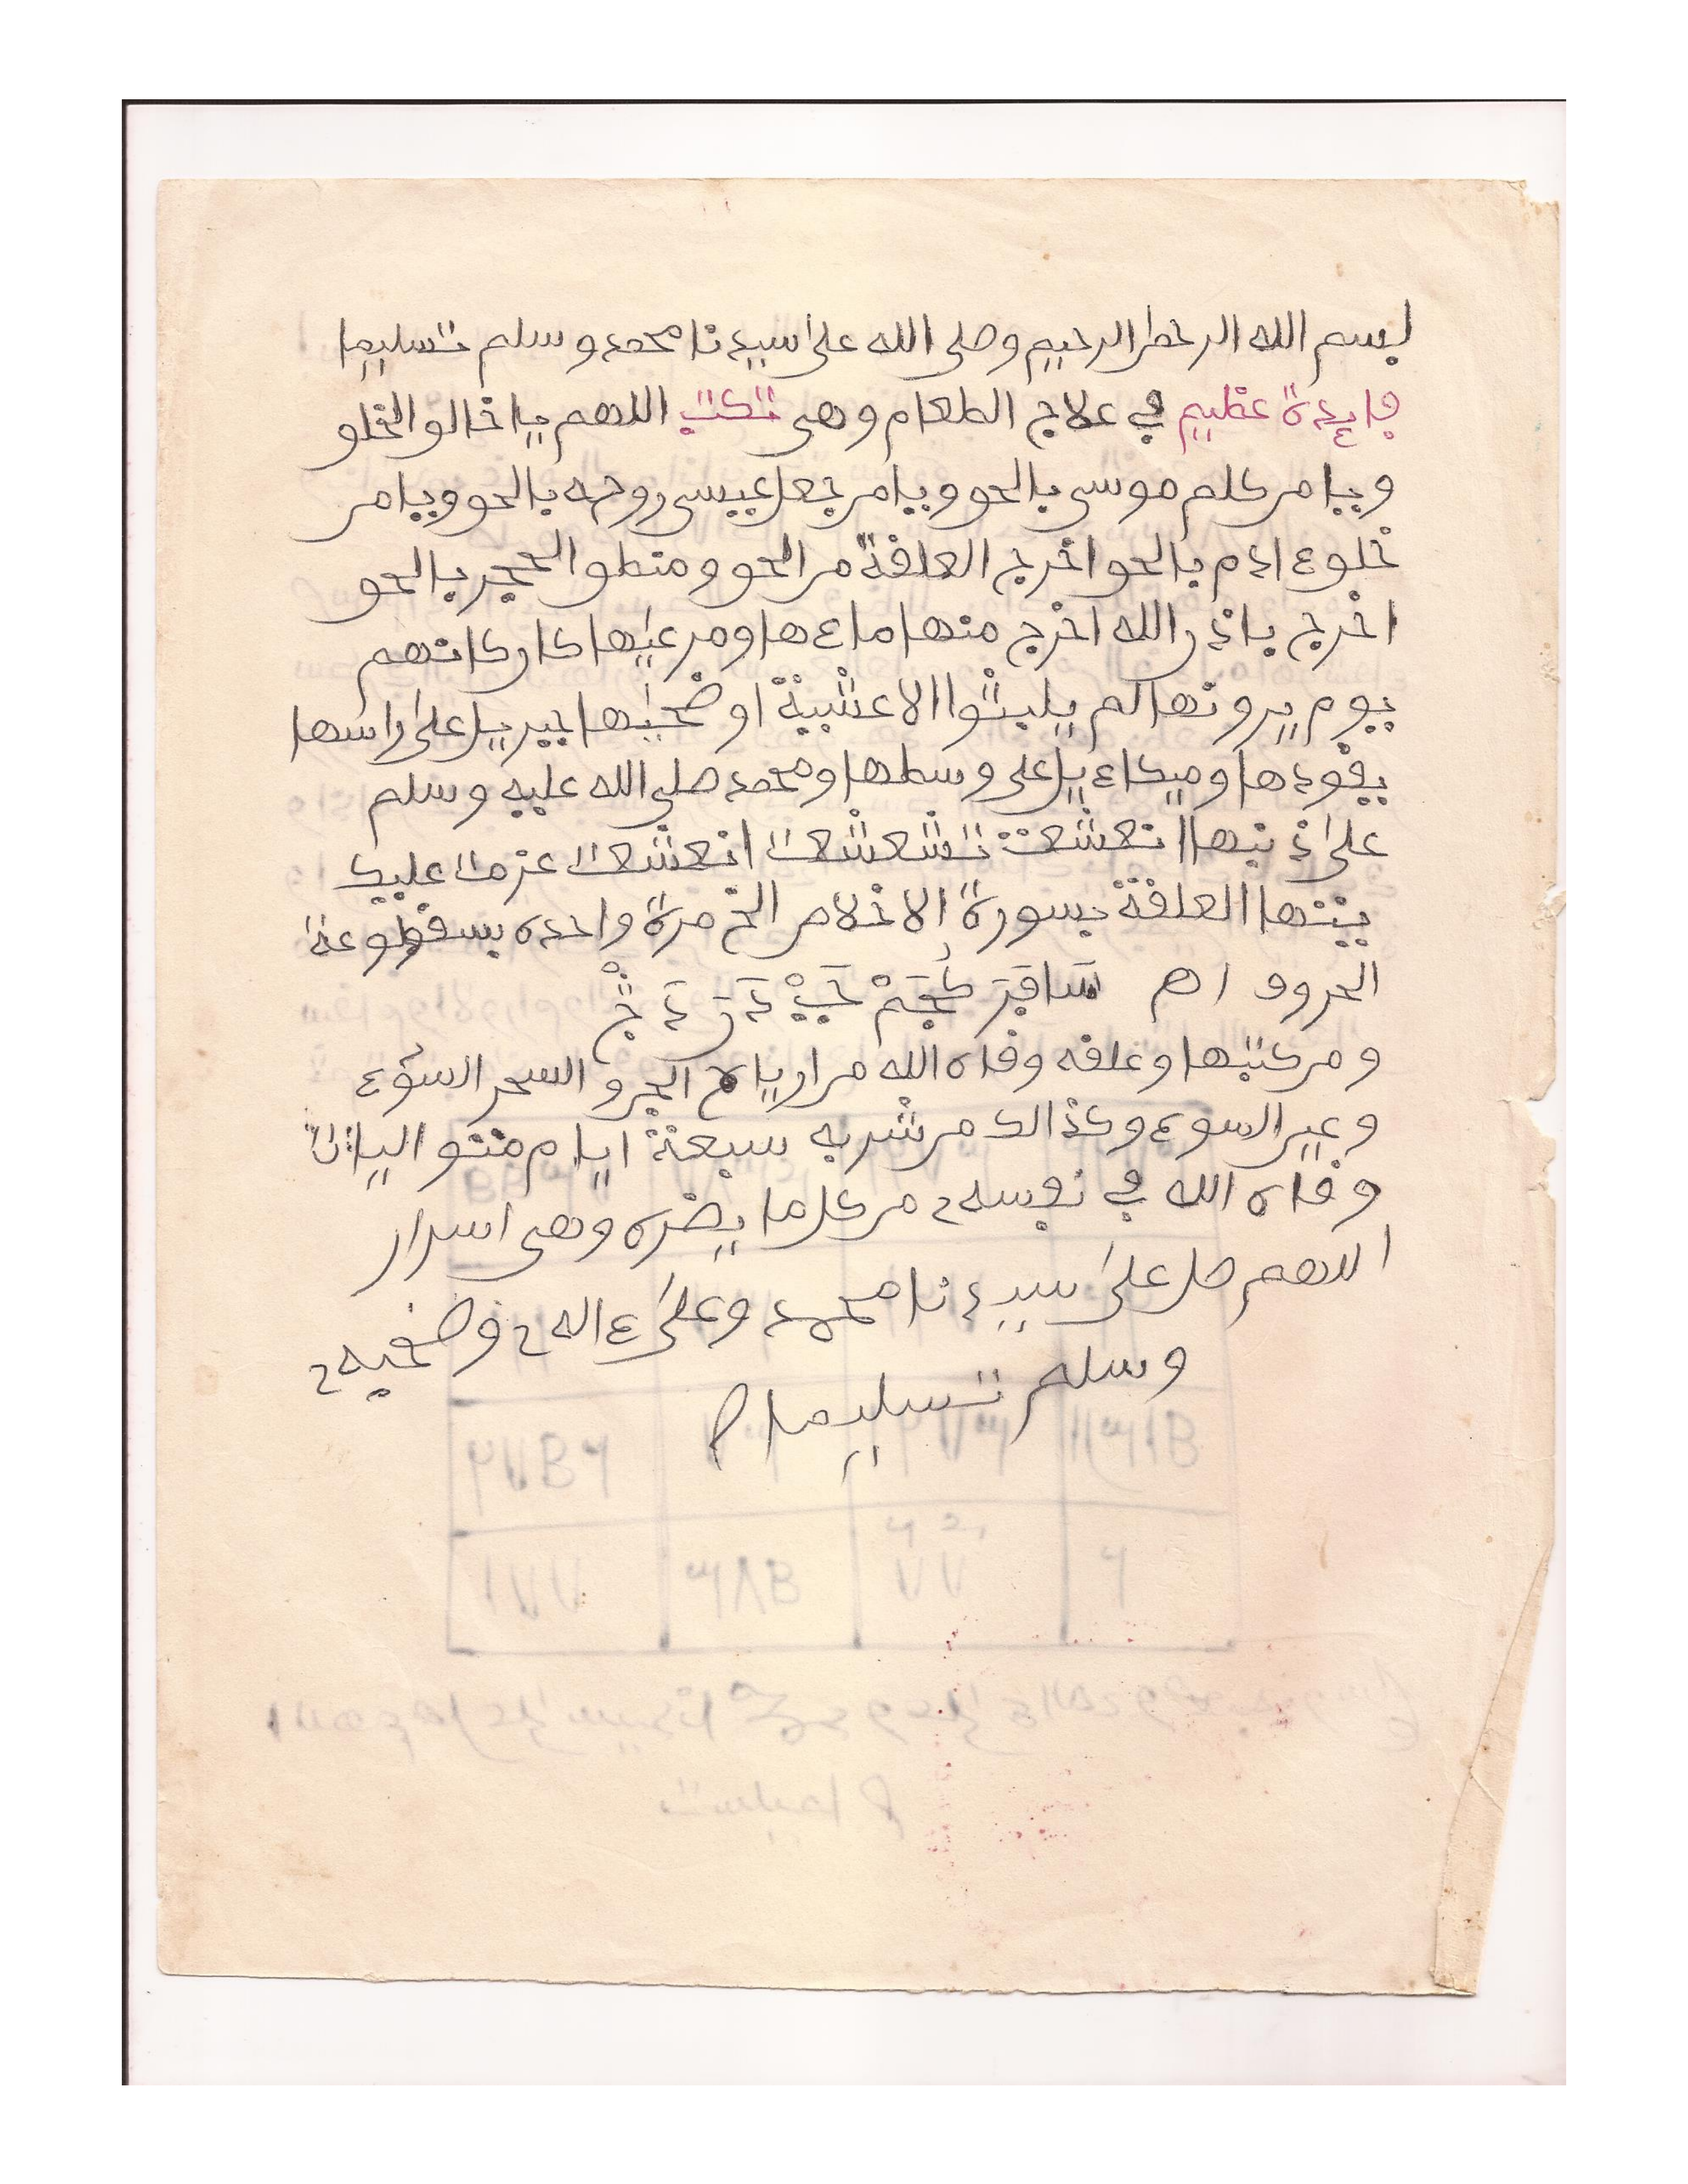 بسم الله الرحمن الرحيم وصلى الله على سيدنا محمد وسلم تسليما
فايدة عظيم في علاج الطعام وهى تكتب اللهم يا خالق الخلق
ويا من كلم موسى بالحق ويا من جعل عيسى روحه بالحق ويا من
خلق ءادم بالحق اخرج العلقة من الحق ومنطق الحجر بالحق
اخرج باذن الله اخرج منها ماءها ومرعيها كان كانهم
يوم يرونها لم يلبثوا الا عشية او ضحيها جبريل على راسها
يقودها وميكاءيل على وسطها ومحمد صلى الله عليه وسلم
على ذنبها انعشعت تشعشعت انعشعت عزمت عليك
ييتها العلقة بسورة الاخلاص الخ مرة واحده بسقطوعة
الحروف اهـ
ومن كتبها وعلقه وقاه الله من ارياح الجن والسحر السوء
وغير السوء وكذالك من شربه سبعة ايام متواليات
وقاه الله في نفسه من كل ما يضره وهى اسرار
اللهم صل على سيدنا محمد وعلى ءاله وصحبه
وسلم تسليما